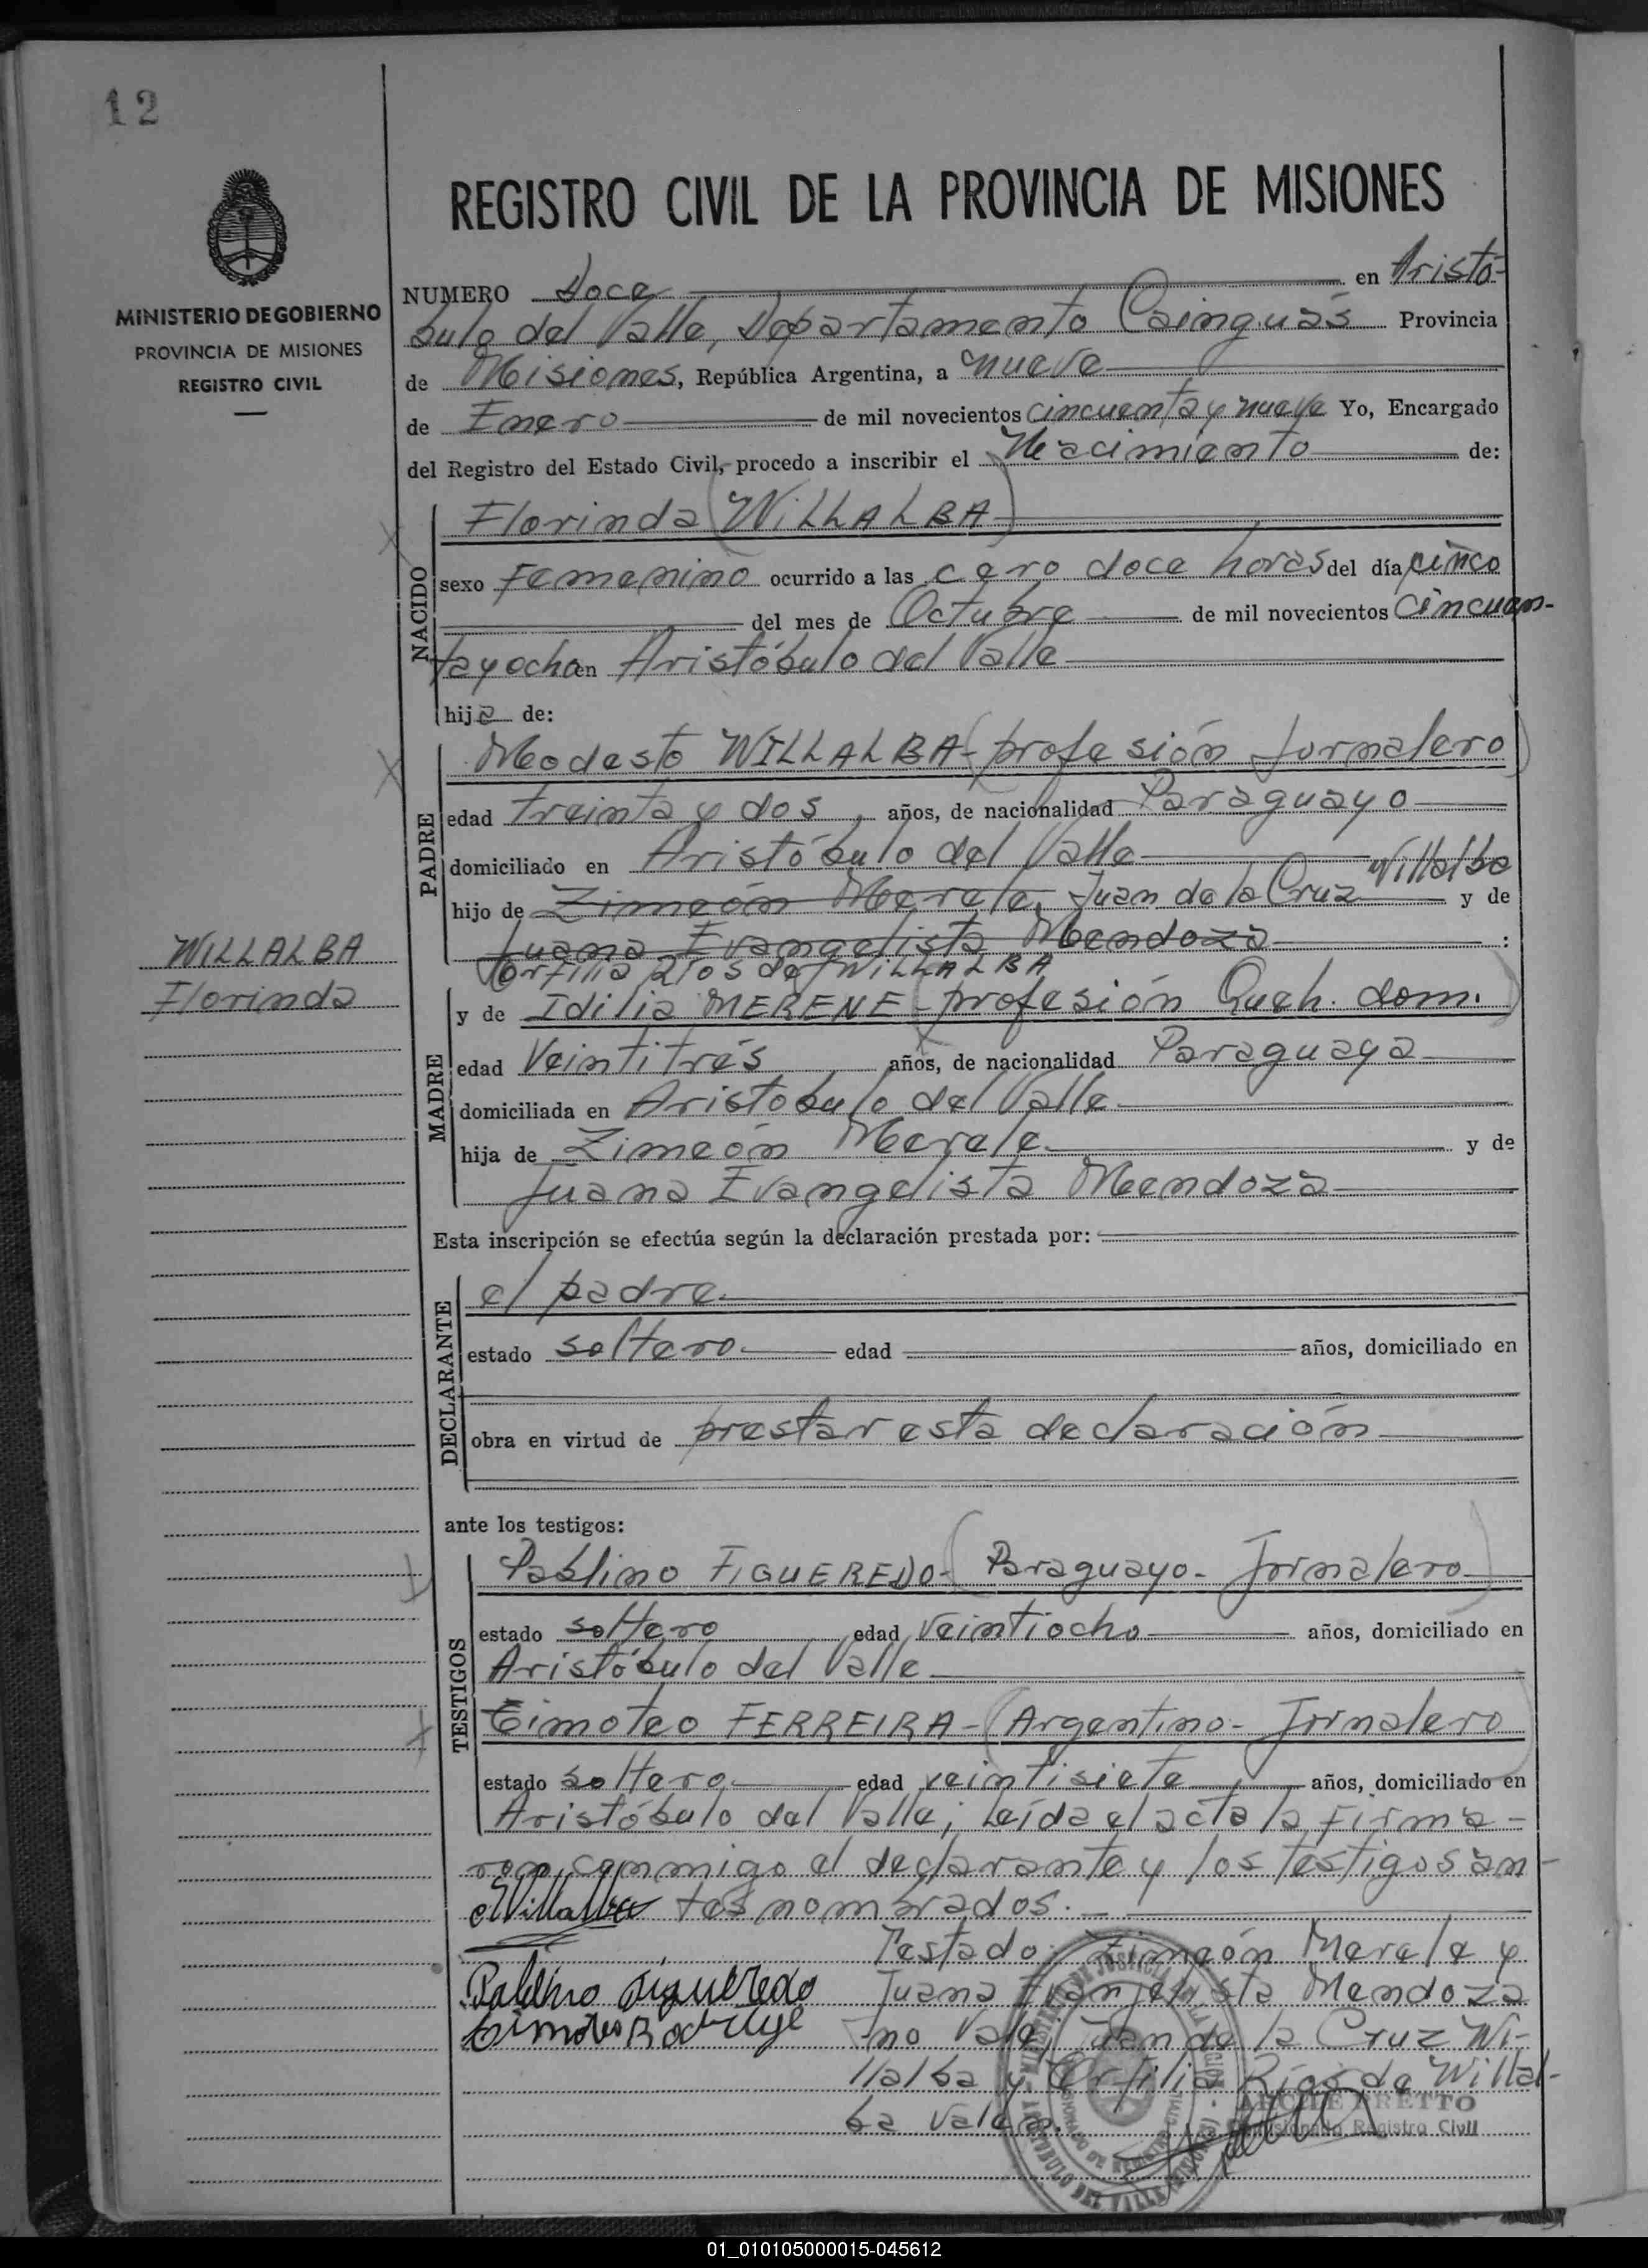 12
MINISTERIO DE GOBIERNO
PROVINCIA DE MISIONES
REGISTRO CIVIL
REGISTRO CIVIL DE LA PROVINCIA DE MISIONES
NUMERO Doce en Aristó-
bulo del Valle, Departamento Cainguás Provincia
de Misiones, República Argentina, a nueve
de Enero de mil novecientos cincuenta y nueve Yo, Encargado
del Registro del Estado Civil, procedo a inscribir el Nacimiento de:
NACIDO
Florinda (WILLALBA)
sexo Femenino ocurrido a las cero doce horas del día cinco
del mes de Octubre de mil novecientos cincuen-
tayocho en Aristóbulo del Valle
hija de:
PADRE
Modesto WILLALBA-(profesión Jornalero)
edad treinta y dos años, de nacionalidad Paraguayo
domiciliado en Aristóbulo del Valle
Willalba
hijo de Zimeón Merele, Juan de la Cruz y de
Juana Evangelista Mendoza :
Ríos de WILLALBA
WILLALBA
Florinda
MADRE
y de Idilia MERENE-(profesión Queh. dom.)
edad Veintitrés años, de nacionalidad Paraguaya
domiciliada en Aristobulo del Valle
hija de Zimeón Merele y de
Juana Evangelista Mendoza
Esta inscripción se efectúa según la declaración prestada por:
DECLARANTE
el padre
estado soltero edad años, domiciliado en
obra en virtud de prestar esta declaración
ante los testigos:
TESTIGOS
Pablino FIGUEREDO-(Paraguayo-Jornalero)
estado soltero edad veintiocho años, domiciliado en
Aristóbulo del Valle
Timoteo FERREIRA-(Argentino-Jornalero)
estado soltero edad veintisiete años, domiciliado en
Aristóbulo del Valle; leída el acta la firma-
ron conmigo el declarante y los testigos an-
MVillalba tes nombrados.
Testado: Zimeón Merele y
Pablino Figueredo Juana Evanjelista Mendoza
Timoteo no vale; Juan de la Cruz Wi-
llalba y Ríos de Willal-
ba vale.
PRETTO
Comisionado Registro Civil
01_010105000015-045612